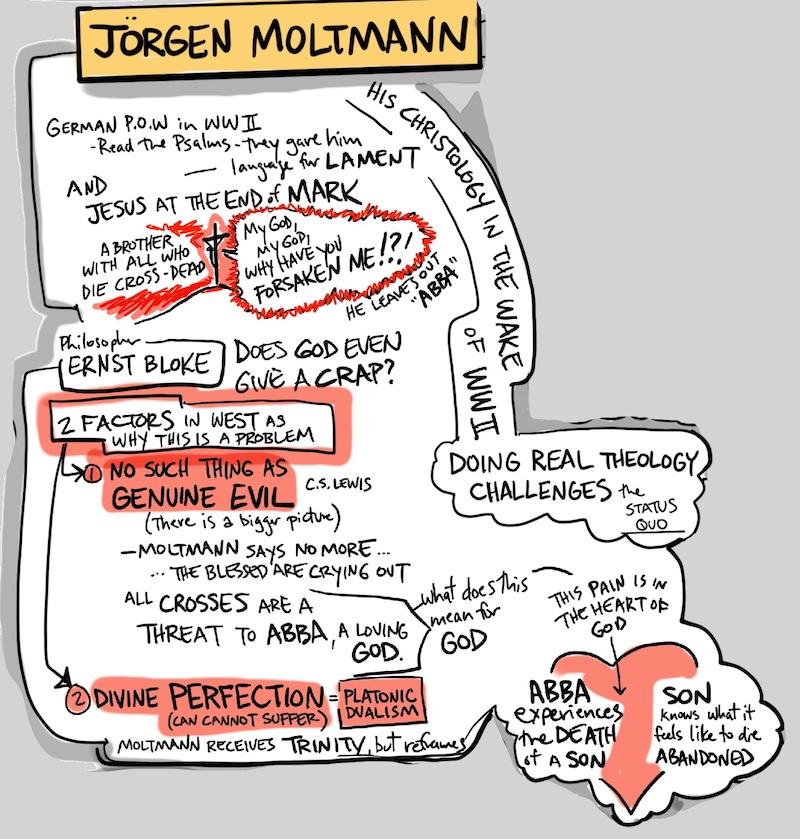 JÖRGEN MOLTMANN
HIS CHRISTOLOGY IN THE WAKE
OF WWII
GERMAN P.O.W in WWII
-Read the Psalms-they gave him
— language for LAMENT
AND
JESUS AT THE END of MARK
A BROTHER
WITH ALL WHO
DIE CROSS-DEAD
MY GOD,
MY GOD,
WHY HAVE YOU
FORSAKEN ME!?!
HE LEAVES OUT
"ABBA"
Philosopher
ERNST BLOKE
DOES GOD EVEN
GIVE A CRAP?
2 FACTORS IN WEST AS
WHY THIS IS A PROBLEM
① NO SUCH THING AS
GENUINE EVIL
C.S. LEWIS
(There is a bigger picture)
—MOLTMANN SAYS NO MORE...
... THE BLESSED ARE CRYING OUT
ALL CROSSES ARE A
THREAT TO ABBA, A LOVING
GOD.
what does this
mean for
GOD
② DIVINE PERFECTION = PLATONIC
DUALISM
(CAN CANNOT SUFFER)
MOLTMANN RECEIVES TRINITY, but reframes
DOING REAL THEOLOGY
CHALLENGES the
STATUS
QUO
THIS PAIN IS IN
THE HEART OF
GOD
ABBA
experiences
the DEATH
of A SON
SON
knows what it
feels like to die
ABANDONED